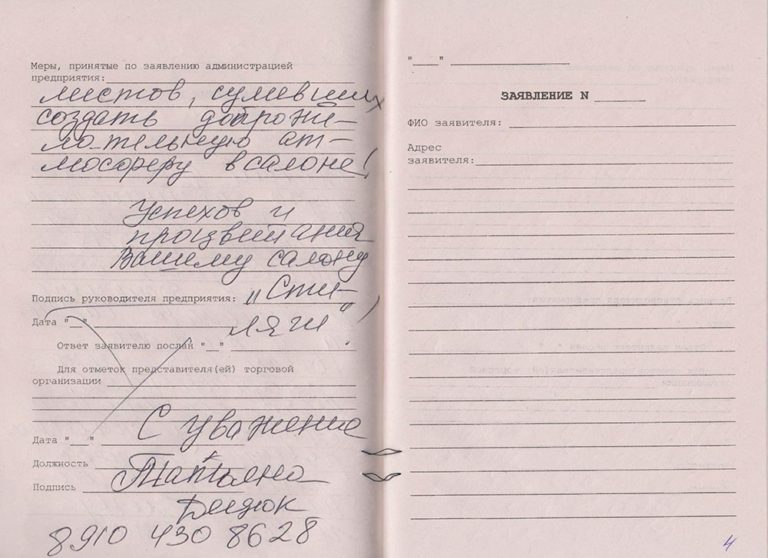 Меры, принятые по заявлению администрацией
предприятия:
листов, сумевших
создать доброже-
лательную ат-
мосферу в салоне!
Успехов и
процветания
Вашему салону
Подпись руководителя предприятия: "Сти-
Дата "__" ляги"!
Ответ заявителю послан "__"
Для отметок представителя(ей) торговой
организации
Дата "__" С уважение
Должность Татьяна
Подпись
8 910 430 8628
"___"
ЗАЯВЛЕНИЕ N
ФИО заявителя:
Адрес
заявителя:
4